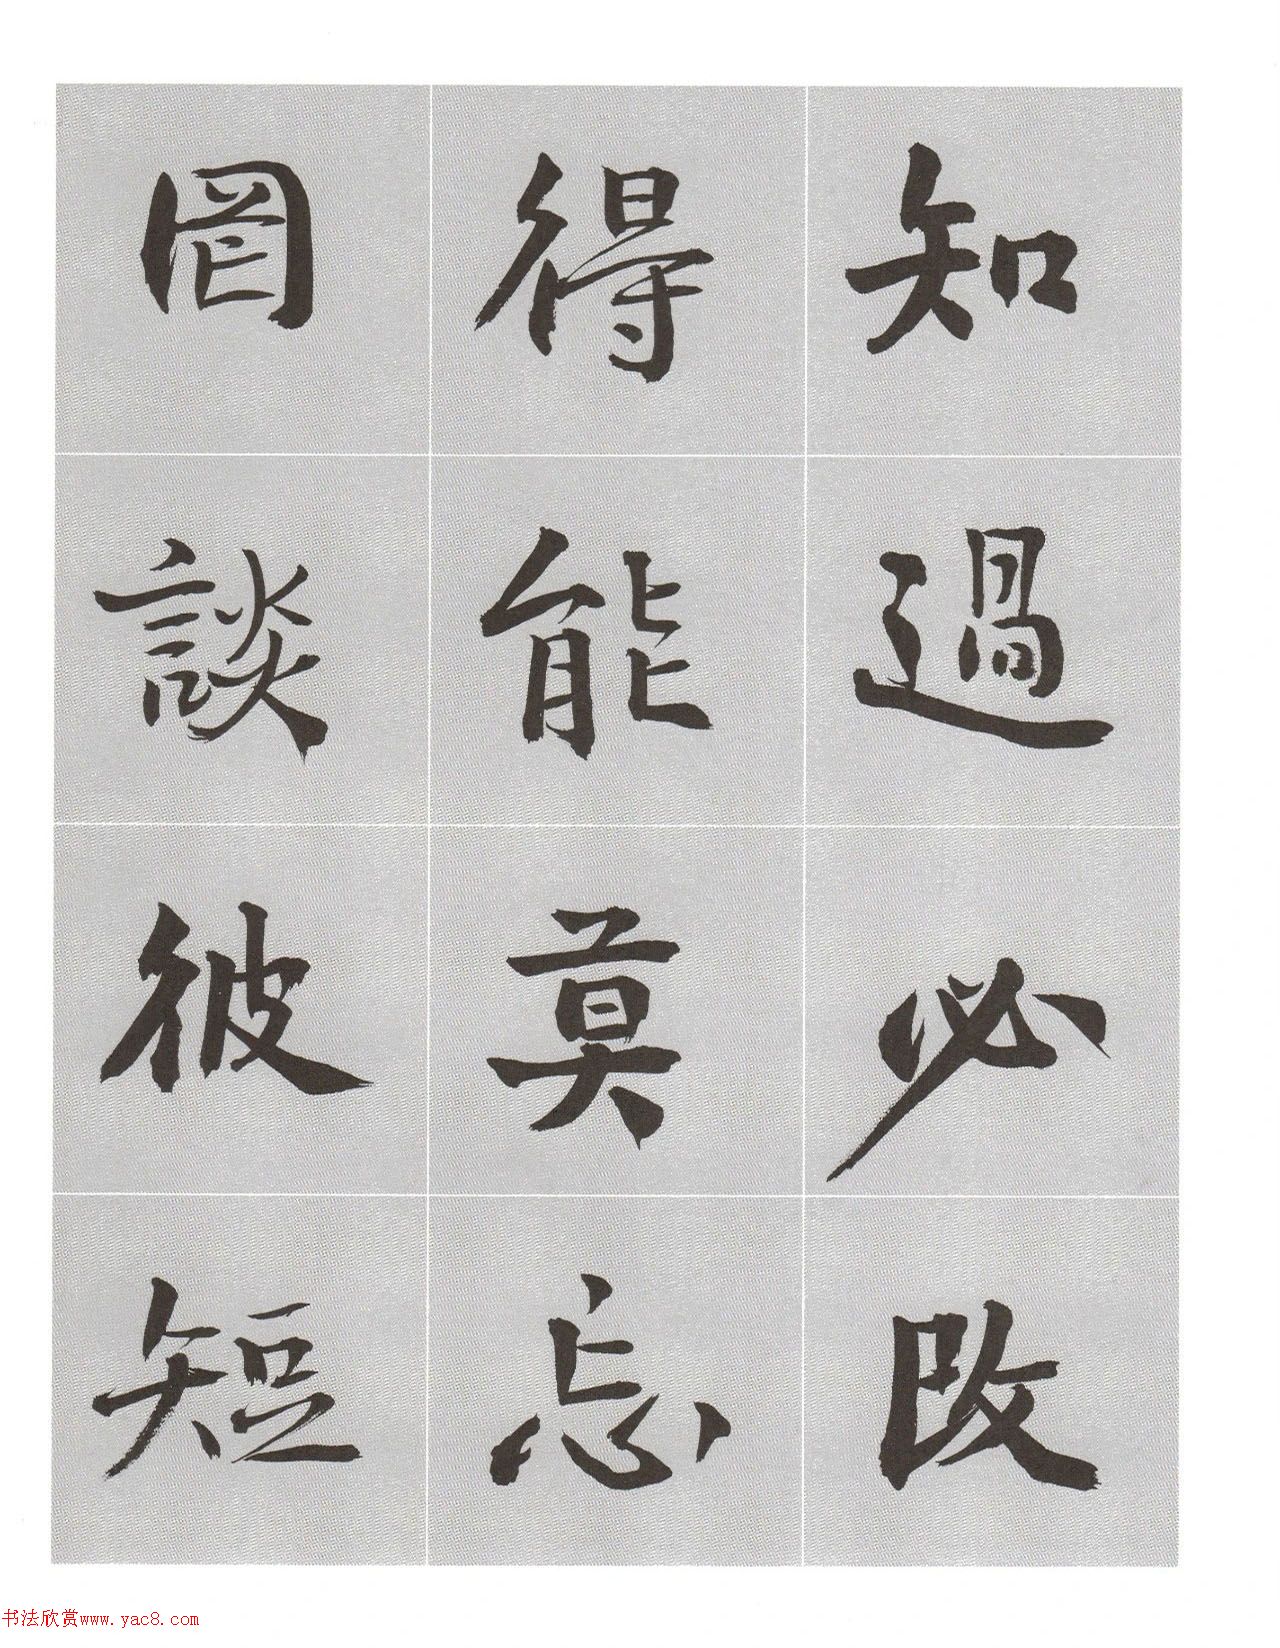 知過必改
得能莫忘
罔談彼短
书法欣赏www.yac8.com